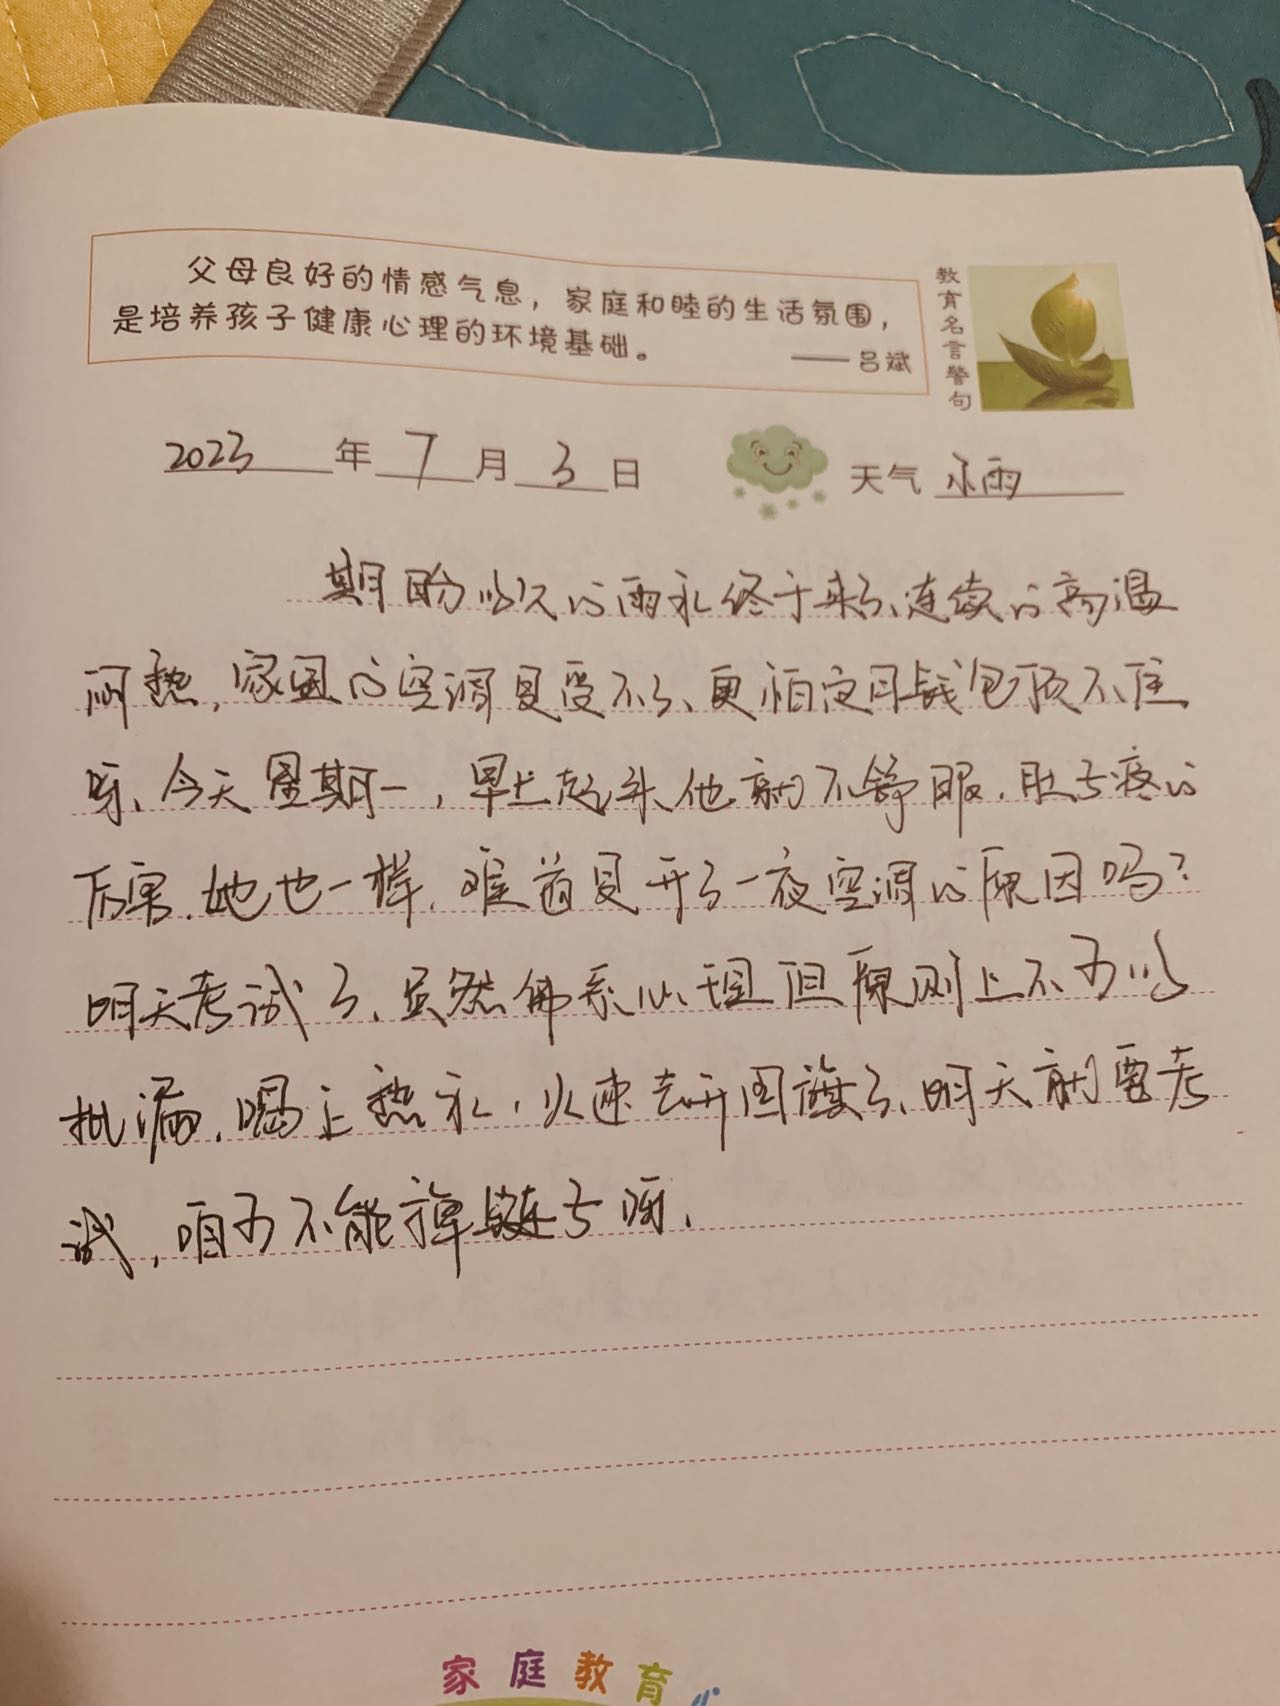 父母良好的情感气息，家庭和睦的生活氛围，
是培养孩子健康心理的环境基础。
——吕斌
教育名言警句
2023年7月3日 天气 雨
期盼以久的雨水终于来了、连续的高温
闷热，家里的空调是受不了、更怕这月钱包顶不住
呀、今天星期一，早上起来他就不舒服.肚子疼的
厉害.她也一样.难道是开了一夜空调的原因吗？
明天考试了、虽然佛系心理但原则上不可以
批漏.喝上热水，火速去开国旗了、明天就要考
试，咱可不能掉链子呀.
家庭教育